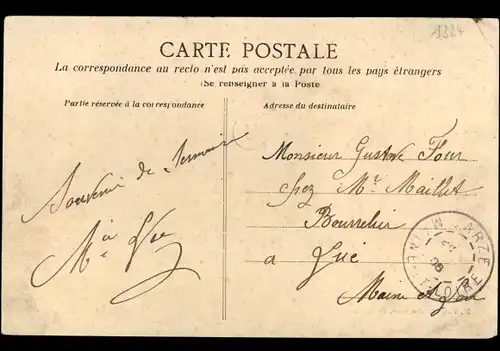 1324
CARTE POSTALE
La correspondance au recto n'est pas acceptée par tous les pays étrangers
(Se renseigner à la Poste
Partie réservée à la correspondance
Souvenir de
Adresse du destinataire
Monsieur Gustave Four
chez Mr. Maillet
Bourrelier
a Jué
Maine et Loire
ARZE